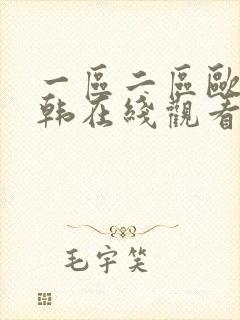 一區二區歐
韩在綫觀看
毛宇笑